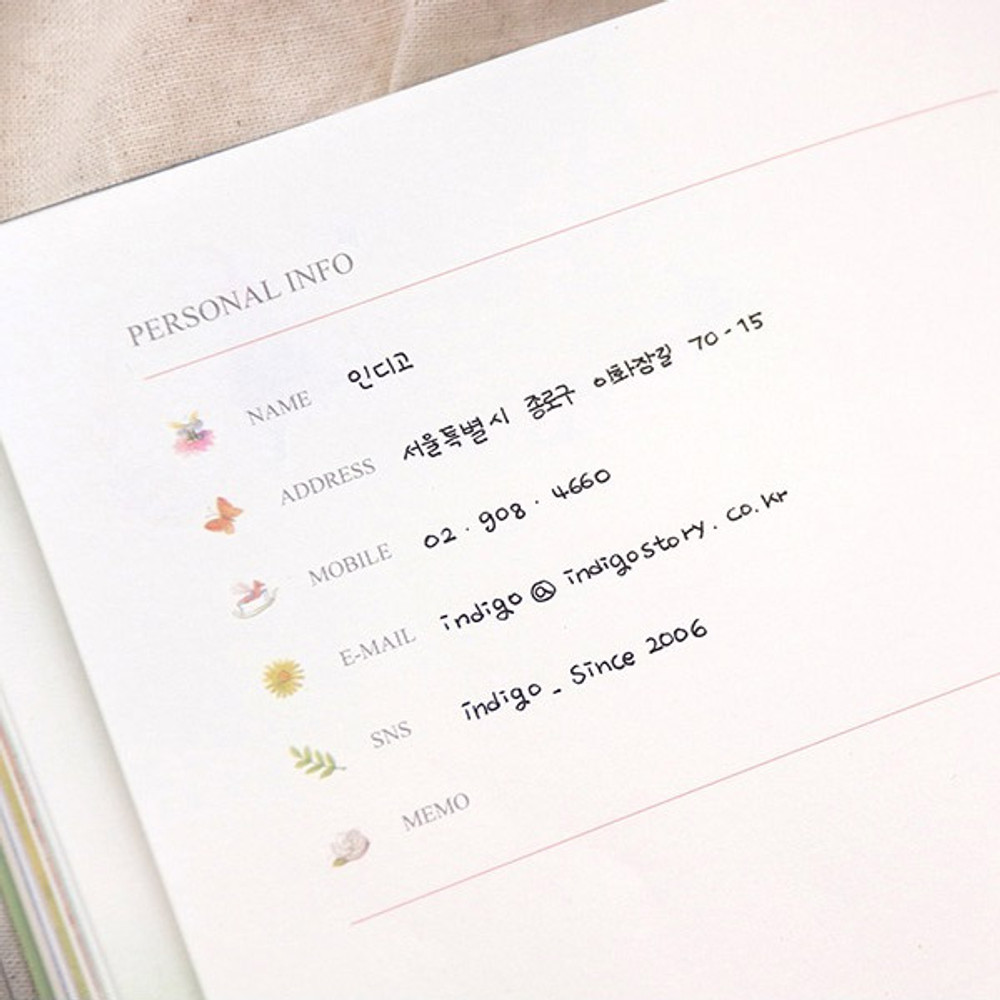 PERSONAL INFO
NAME 인디고
ADDRESS 서울특별시 종로구 이화장길 70-15
MOBILE 02.908.4660
E-MAIL indigo@indigostory.co.kr
SNS indigo_since 2006
MEMO